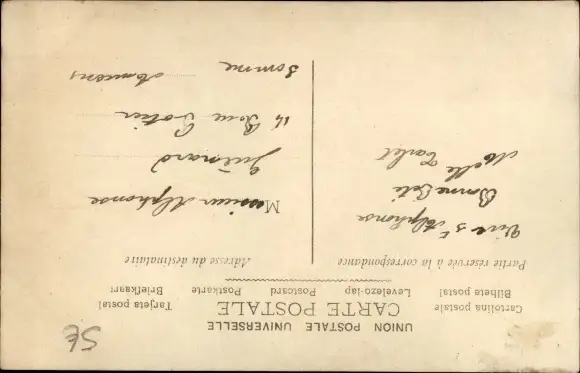 UNION POSTALE UNIVERSELLE
CARTE POSTALE
Cartolina postale Levelezo-lap Postcard Postkarte Tarjeta postal
Bilhete postal Briefkaart
Partie réservée à la correspondance
Adresse du destinataire
Vive St Alphonse
Bonne Fête
Melle
Monsieur Alphonse
Guénard
14 Rue
Amiens
Somme